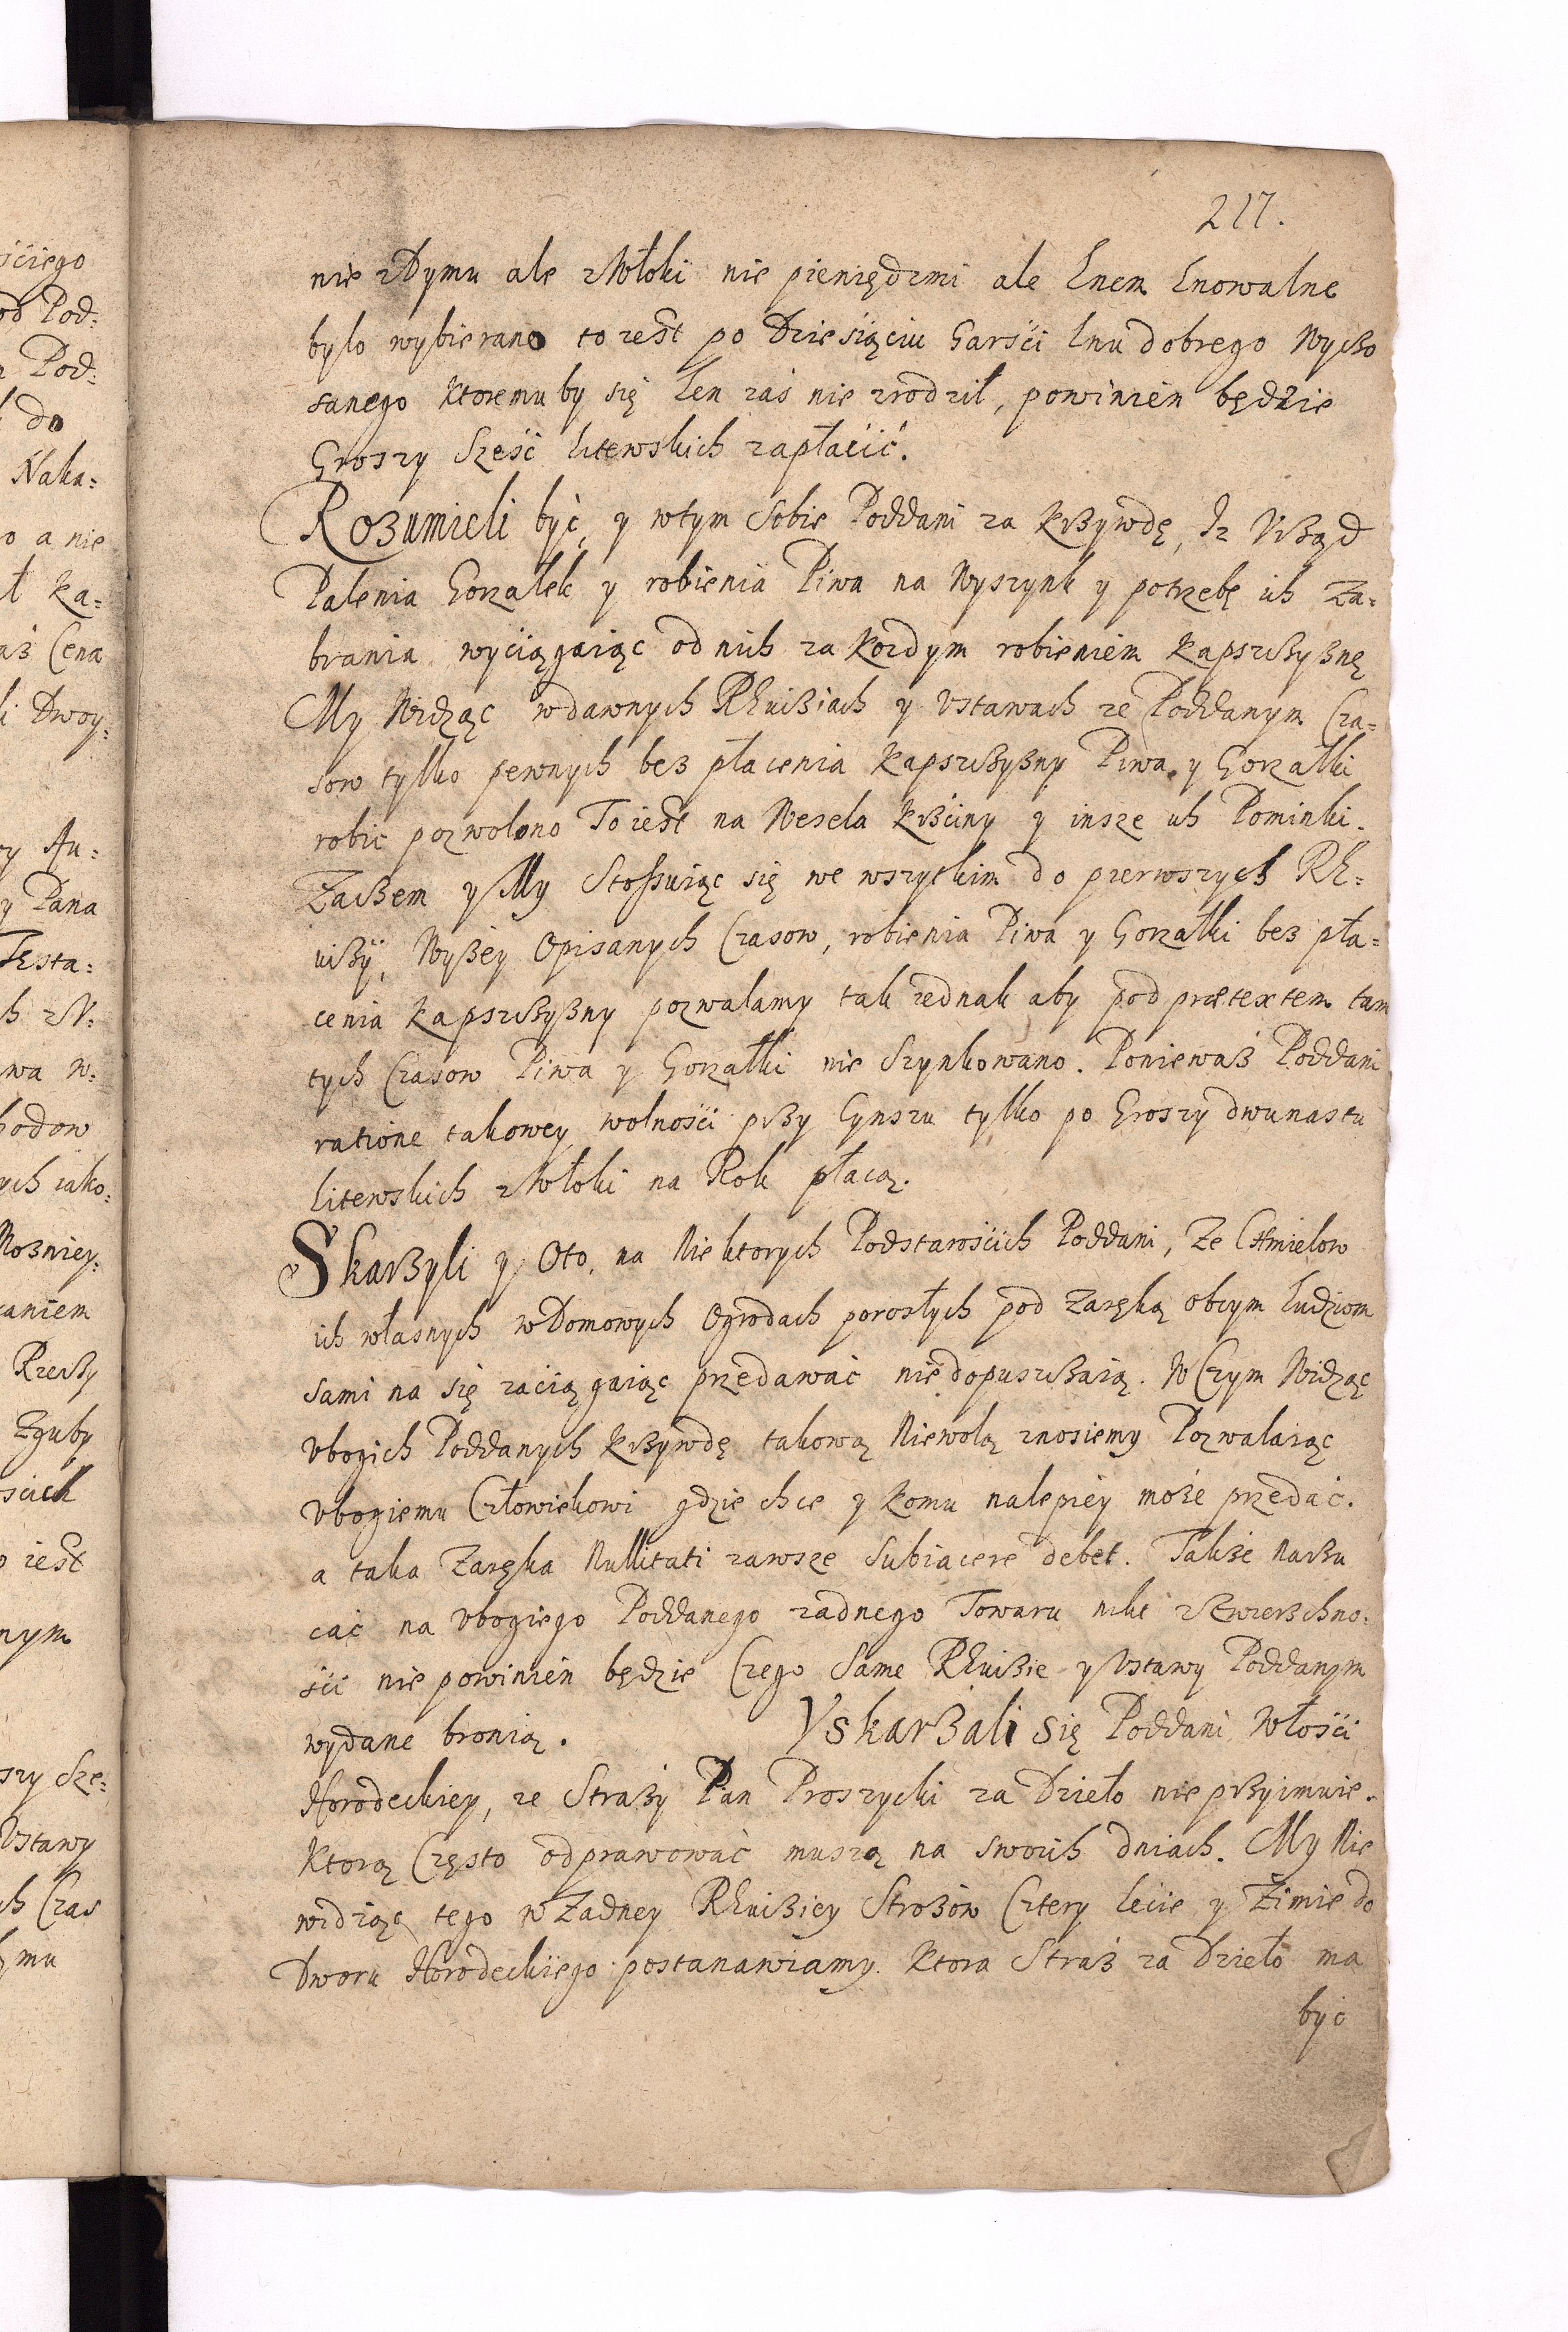 217.
nie z Dymu ale z Włoki nie pieniędzmi ale lnem lnowalne
bylo wybierano to iest po Dziesiąciu Garsci lnu dobrego Wycżo
sanego Ktoremuby się Len zaś nie zrodził, powinien będzie
Groszy Sześć litewskich zapłacić.
Rozumieli być, y wtym Sobie Poddani za Krzywdę, Iz Vrząd
Palenia Gorzałek y robienia Piwa na Wyszynk y potrzebę ich Za=
brania wyciągaiąc od nich za Kozdym robieniem Kapszczyznę
My Widząc wdawnych Rewiziach y Vstawach ze Poddanym Cza=
sow tylko pewnych bez płacenia Kapszczyzny Piwa y Gorzałki
robic pozwolono To iest na Wesela Krzciny y insze ich Pominki.
Zaczem y My Stosuiąc się we wszytkim do pierwszych Re=
wizÿ, Wyżey Opisanych Czasow, robienia Piwa y Gorzałki bez pła=
cenia Kapszczyzny pozwalamy tak iednak aby pod prætextem tam
tych Czasow Piwa y Gorzałki nie Szynkowano. Ponieważ Poddani
ratione takowey wolnosci przy Cynszu tylko po Groszy dwunastu
litewskich z Włoki na Rok płacą.
Skarzyli y Oto, na Niektorych Podstarościch Poddani, Ze Chmielow
ich własnych w Domowych Ogrodach porosłych pod Zaręką obcym ludziom
sami na się zaciągaiąc przedawać niedopuszczaią. W Czym Widząc
Vbogich Poddanych Krzywdę takową Niewolą znosiemy Pozwalaiąc
Vbogiemu Człowiekowi gdzie chce y komu nalepiéy może przedać.
a taka Zaręka Nullitati zawsze Subiacere debet. Także Narzu
cać na Vbogiego Poddanego zadnego Towaru nikt z Zwierzchno=
ści nie powinien będzie Czego Same Rewizie y Vstawy Poddanym
wydane bronią. Vskarzali się Poddani Włości
Horodeckiey, ze Straży Pan Proszycki za Dzieło nie przyimuie.
Ktorą Często odprawować muszą na swoich dniach. My Nie
widząc tego w Zadney Rewiziey Strożow Cztery lecie y Zimie do
Dworu Horodeckiego postanawiamy. Ktora Straż za Dzieło ma
być